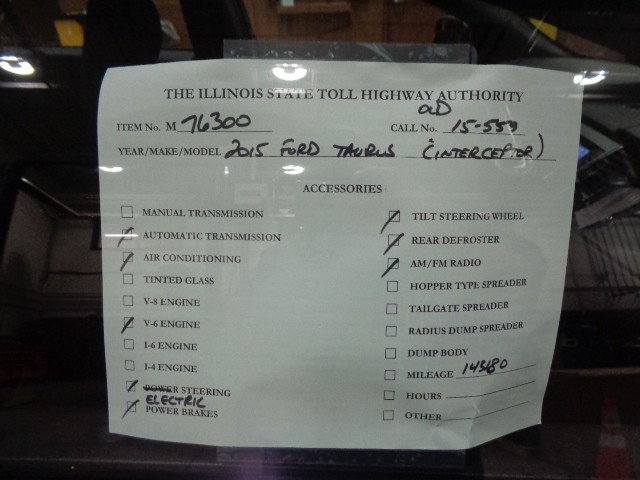 THE ILLINOIS STATE TOLL HIGHWAY AUTHORITY
OLD
ITEM No. M 76300 CALL No. 15-559
YEAR/MAKE/MODEL 2015 FORD TAURUS (INTERCEPTOR)
ACCESSORIES
MANUAL TRANSMISSION
AUTOMATIC TRANSMISSION
AIR CONDITIONING
TINTED GLASS
V-8 ENGINE
V-6 ENGINE
I-6 ENGINE
I-4 ENGINE
POWER STEERING
ELECTRIC
POWER BRAKES
TILT STEERING WHEEL
REAR DEFROSTER
AM/FM RADIO
HOPPER TYPE SPREADER
TAILGATE SPREADER
RADIUS DUMP SPREADER
DUMP BODY
MILEAGE 143680
HOURS
OTHER